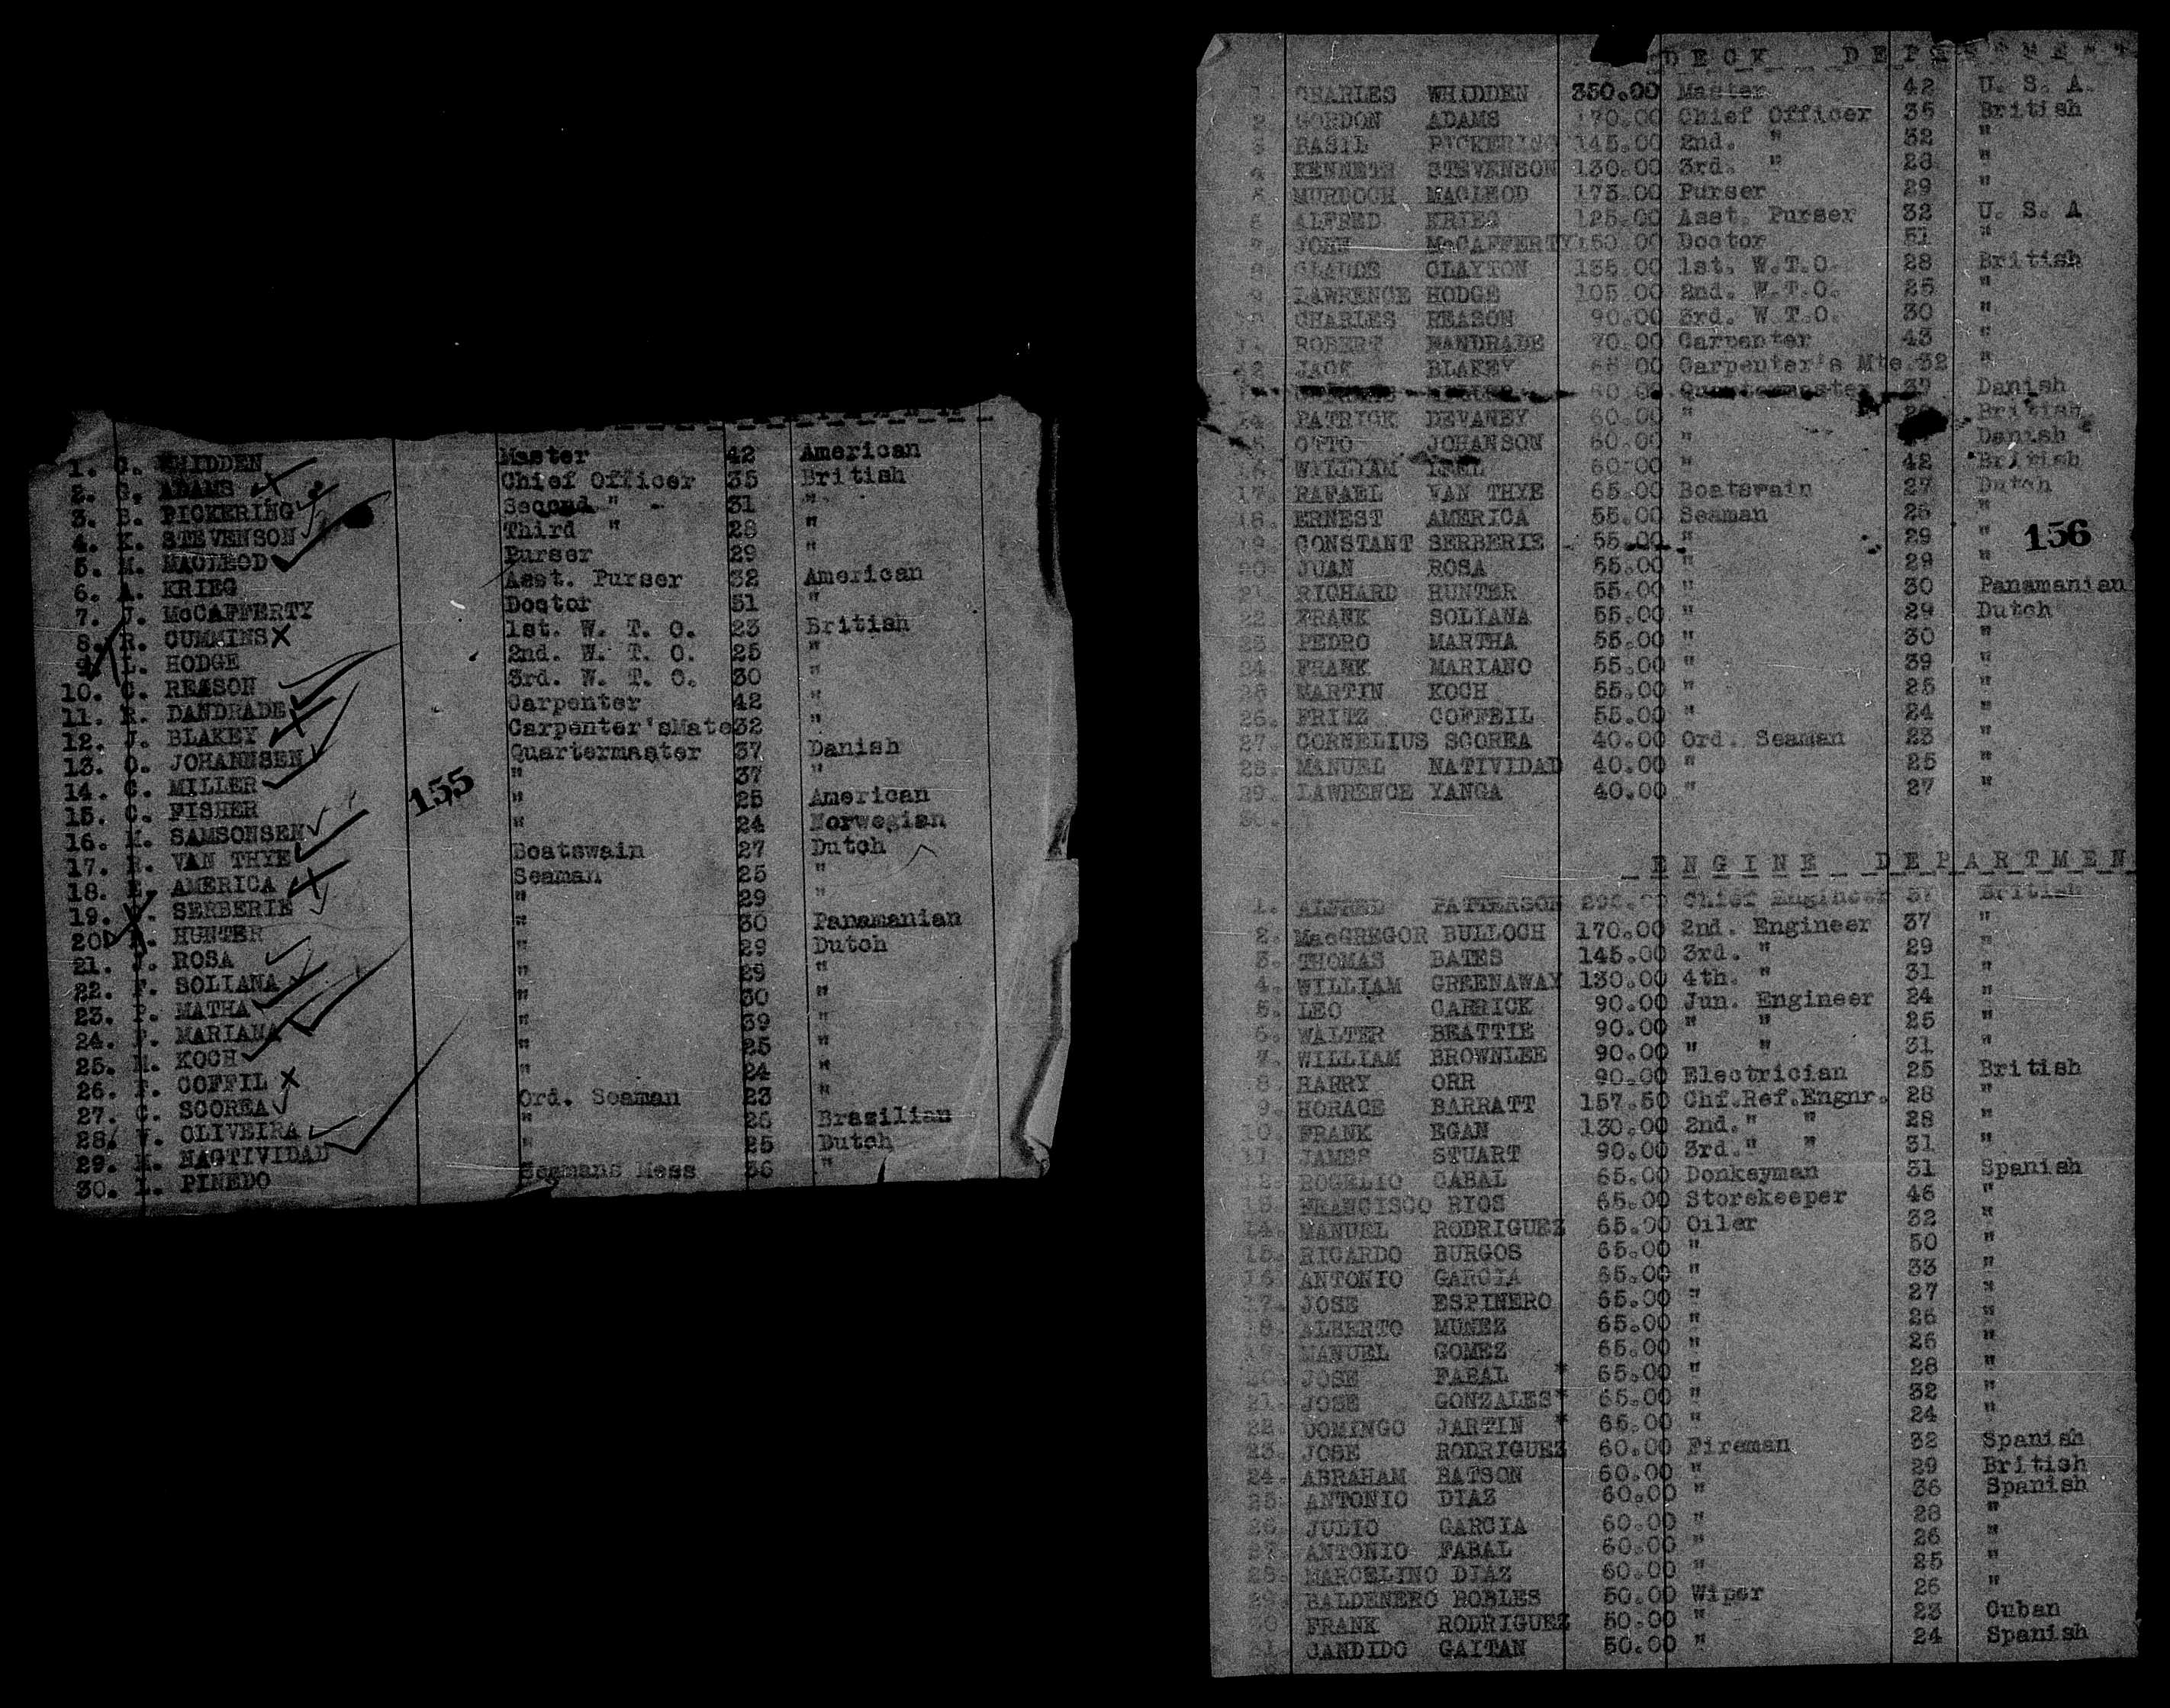 1. C. WHIDDEN Master 42 American
2. G. ADAMS Chief Officer 35 British
3. B. PICKERING Second " 31 "
4. K. STEVENSON Third " 28 "
5. M. MACLEOD Purser 29 "
6. A. KRIEG Asst. Purser 32 American
7. J. McCAFFERTY Doctor 51 "
8. R. CUMMINS X 1st. W. T. O. 23 British
9. L. HODGE 2nd. W. T. O. 25 "
10. C. REASON 3rd. W. T. O. 30 "
11. R. DANDRADE Carpenter 42 "
12. J. BLAKEY Carpenter'sMate 32 "
13. O. JOHANNSEN Quartermaster 37 Danish
14. C. MILLER " 37 "
15. C. FISHER " 25 American
16. M. SAMSONSEN " 24 Norwegian
17. R. VAN THYE Boatswain 27 Dutch
18. E. AMERICA Seaman 25 "
19. SERBERIE " 29 "
20. R. HUNTER " 30 Panamanian
21. J. ROSA " 29 Dutch
22. F. SOLIANA " 29 "
23. P. MATHA " 30 "
24. F. MARIANA " 39 "
25. M. KOCH " 25 "
26. F. COFFIL X " 24 "
27. C. SCOREA Ord. Seaman 23 "
28. V. OLIVEIRA " 25 Brazilian
29. M. NAGTIVIDAD " 25 Dutch
30. L. PINEDO Seamans Mess 36 "
155
DECK DEPARTMENT
1. CHARLES WHIDDEN 350.00 Master 42 U. S. A.
2. GORDON ADAMS 170.00 Chief Officer 35 British
3. BASIL PICKERING 145.00 2nd. " 32 "
4. KENNETH STEVENSON 130.00 3rd. " 28 "
5. MURDOCH MACLEOD 175.00 Purser 29 "
6. ALFRED KRIEG 125.00 Asst. Purser 32 U. S. A
7. JOHN McCAFFERTY 150.00 Doctor 51 "
8. CLAUDE CLAYTON 135.00 1st. W.T.O. 28 British
9. LAWRENCE HODGE 105.00 2nd. W.T.O. 25 "
10. CHARLES REASON 90.00 3rd. W T.O. 30 "
11. ROBERT DANDRADE 70.00 Carpenter 43 "
12 JACK BLAKEY 65 00 Carpenter's Mte. 32 "
MILLER 60.00 Quartermaster 37 Danish
14 PATRICK DEVANEY 60.00 " British
15 OTTO JOHANSON 60.00 " Danish
16 WILLIAM 60.00 " 42 British
17. RAFAEL VAN THYE 65.00 Boatswain 27 Dutch
18. ERNEST AMERICA 55.00 Seaman 25 "
19. CONSTANT SERBERIE 55.00 " 29 "
156
20. JUAN ROSA 55.00 " 29 "
21 RICHARD HUNTER 55.00 " 30 Panamanian
22. FRANK SOLIANA 55.00 " 29 Dutch
23. PEDRO MARTHA 55.00 " 30 "
24 FRANK MARIANO 55.00 " 39 "
25 MARTIN KOCH 55.00 " 25 "
26. FRITZ COFFEIL 55.00 " 24 "
27. CORNELIUS SCOREA 40.00 Ord. Seaman 23 "
28. MANUEL NATIVIDAD 40.00 " 25 "
29. LAWRENCE YANGA 40.00 " 27 "
30.
ENGINE DEPARTMEN
1. ALFRED PATTERSON Chief Engineer 57 British
2. MacGREGOR BULLOCH 170.00 2nd. Engineer 37 "
3. THOMAS BATES 145.00 3rd. " 29 "
4. WILLIAM GREENAWAY 130.00 4th. " 31 "
5. LEO CARRICK 90.00 Jun. Engineer 24 "
6. WALTER BEATTIE 90.00 " " 25 "
7. WILLIAM BROWNLEE 90.00 " " 31 "
8 HARRY ORR 90.00 Electrician 25 British
9. HORACE BARRATT 157.50 Chf.Ref.Engnr. 28 "
10. FRANK EGAN 130.00 2nd." " 28 "
11 JAMES STUART 90.00 3rd." " 31 "
12. ROGELIO CABAL 65.00 Donkeyman 31 Spanish
13. FRANCISCO RIOS 65.00 Storekeeper 46 "
14. MANUEL RODRIGUEZ 65.00 Oiler 32 "
15. RICARDO BURGOS 65.00 " 50 "
16 ANTONIO GARCIA 65.00 " 33 "
17. JOSE ESPINERO 65.00 " 27 "
18. ALBERTO MUNEZ 65.00 " 26 "
19. MANUEL GOMEZ 65.00 " 26 "
20. JOSE FABAL * 65.00 " 28 "
21. JOSE GONZALES* 65.00 " 32 "
22. DOMINGO JARTIN * 65.00 " 24 "
23. JOSE RODRIGUEZ 60.00 Fireman 32 Spanish
24. ABRAHAM BATSON 60.00 " 29 British
25. ANTONIO DIAZ 60.00 " 36 Spanish
26. JULIO GARCIA 60.00 " 28 "
27. ANTONIO FABAL 60.00 " 26 "
28. MARCELINO DIAZ 60.00 " 25 "
29. BALDENERO ROBLES 50.00 Wiper 26 "
30 FRANK RODRIGUEZ 50.00 " 23 Cuban
31. CANDIDO GAITAN 50.00 " 24 Spanish